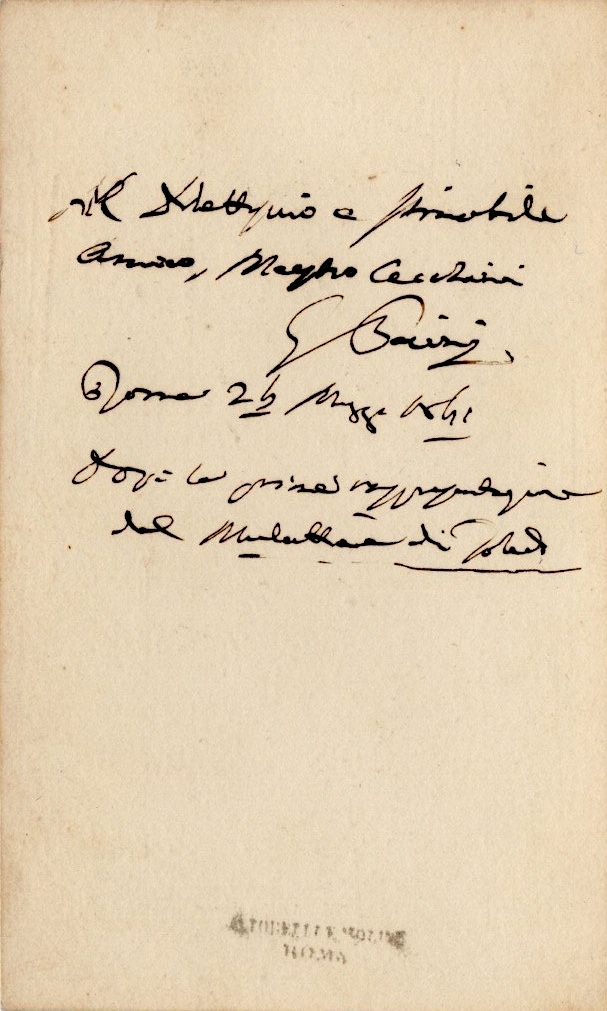 Al Dilettissimo e stimabile
Amico, Maestro Cecchini
G Pacini
Roma 25 Maggio 1861
Dopo la prima rappresentazione
del Mulattiere di Toledo
ALTOBELLI E MOLINS
ROMA